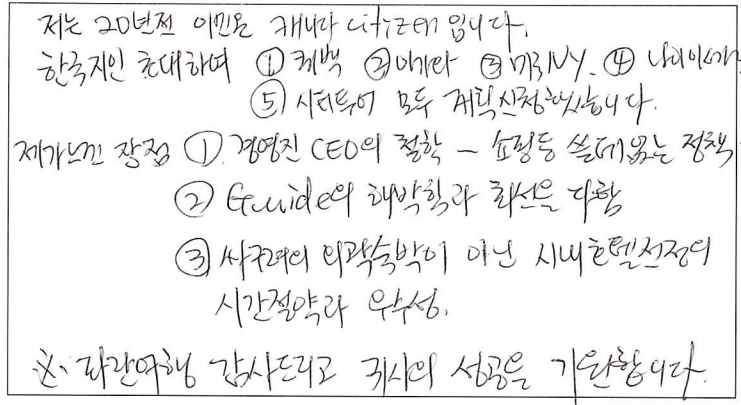 저는 20년전 이민온 캐나다 citizen 입니다.
한국지인 초대하여 ① 퀘백 ② ③ 미국NY. ④
⑤ 시티투어 모두 계획신청했습니다.
제가느낀 장점 ① 경영진 CEO의 철학 – 쇼핑등 쓸데없는 정책
② Guide의 해박함과 최선을 다함
③ 싸구려의 외곽숙박이 아닌 시내호텔선정의
시간절약과 우수성.
※. 파란여행 감사드리고 귀사의 성공을 기원합니다.